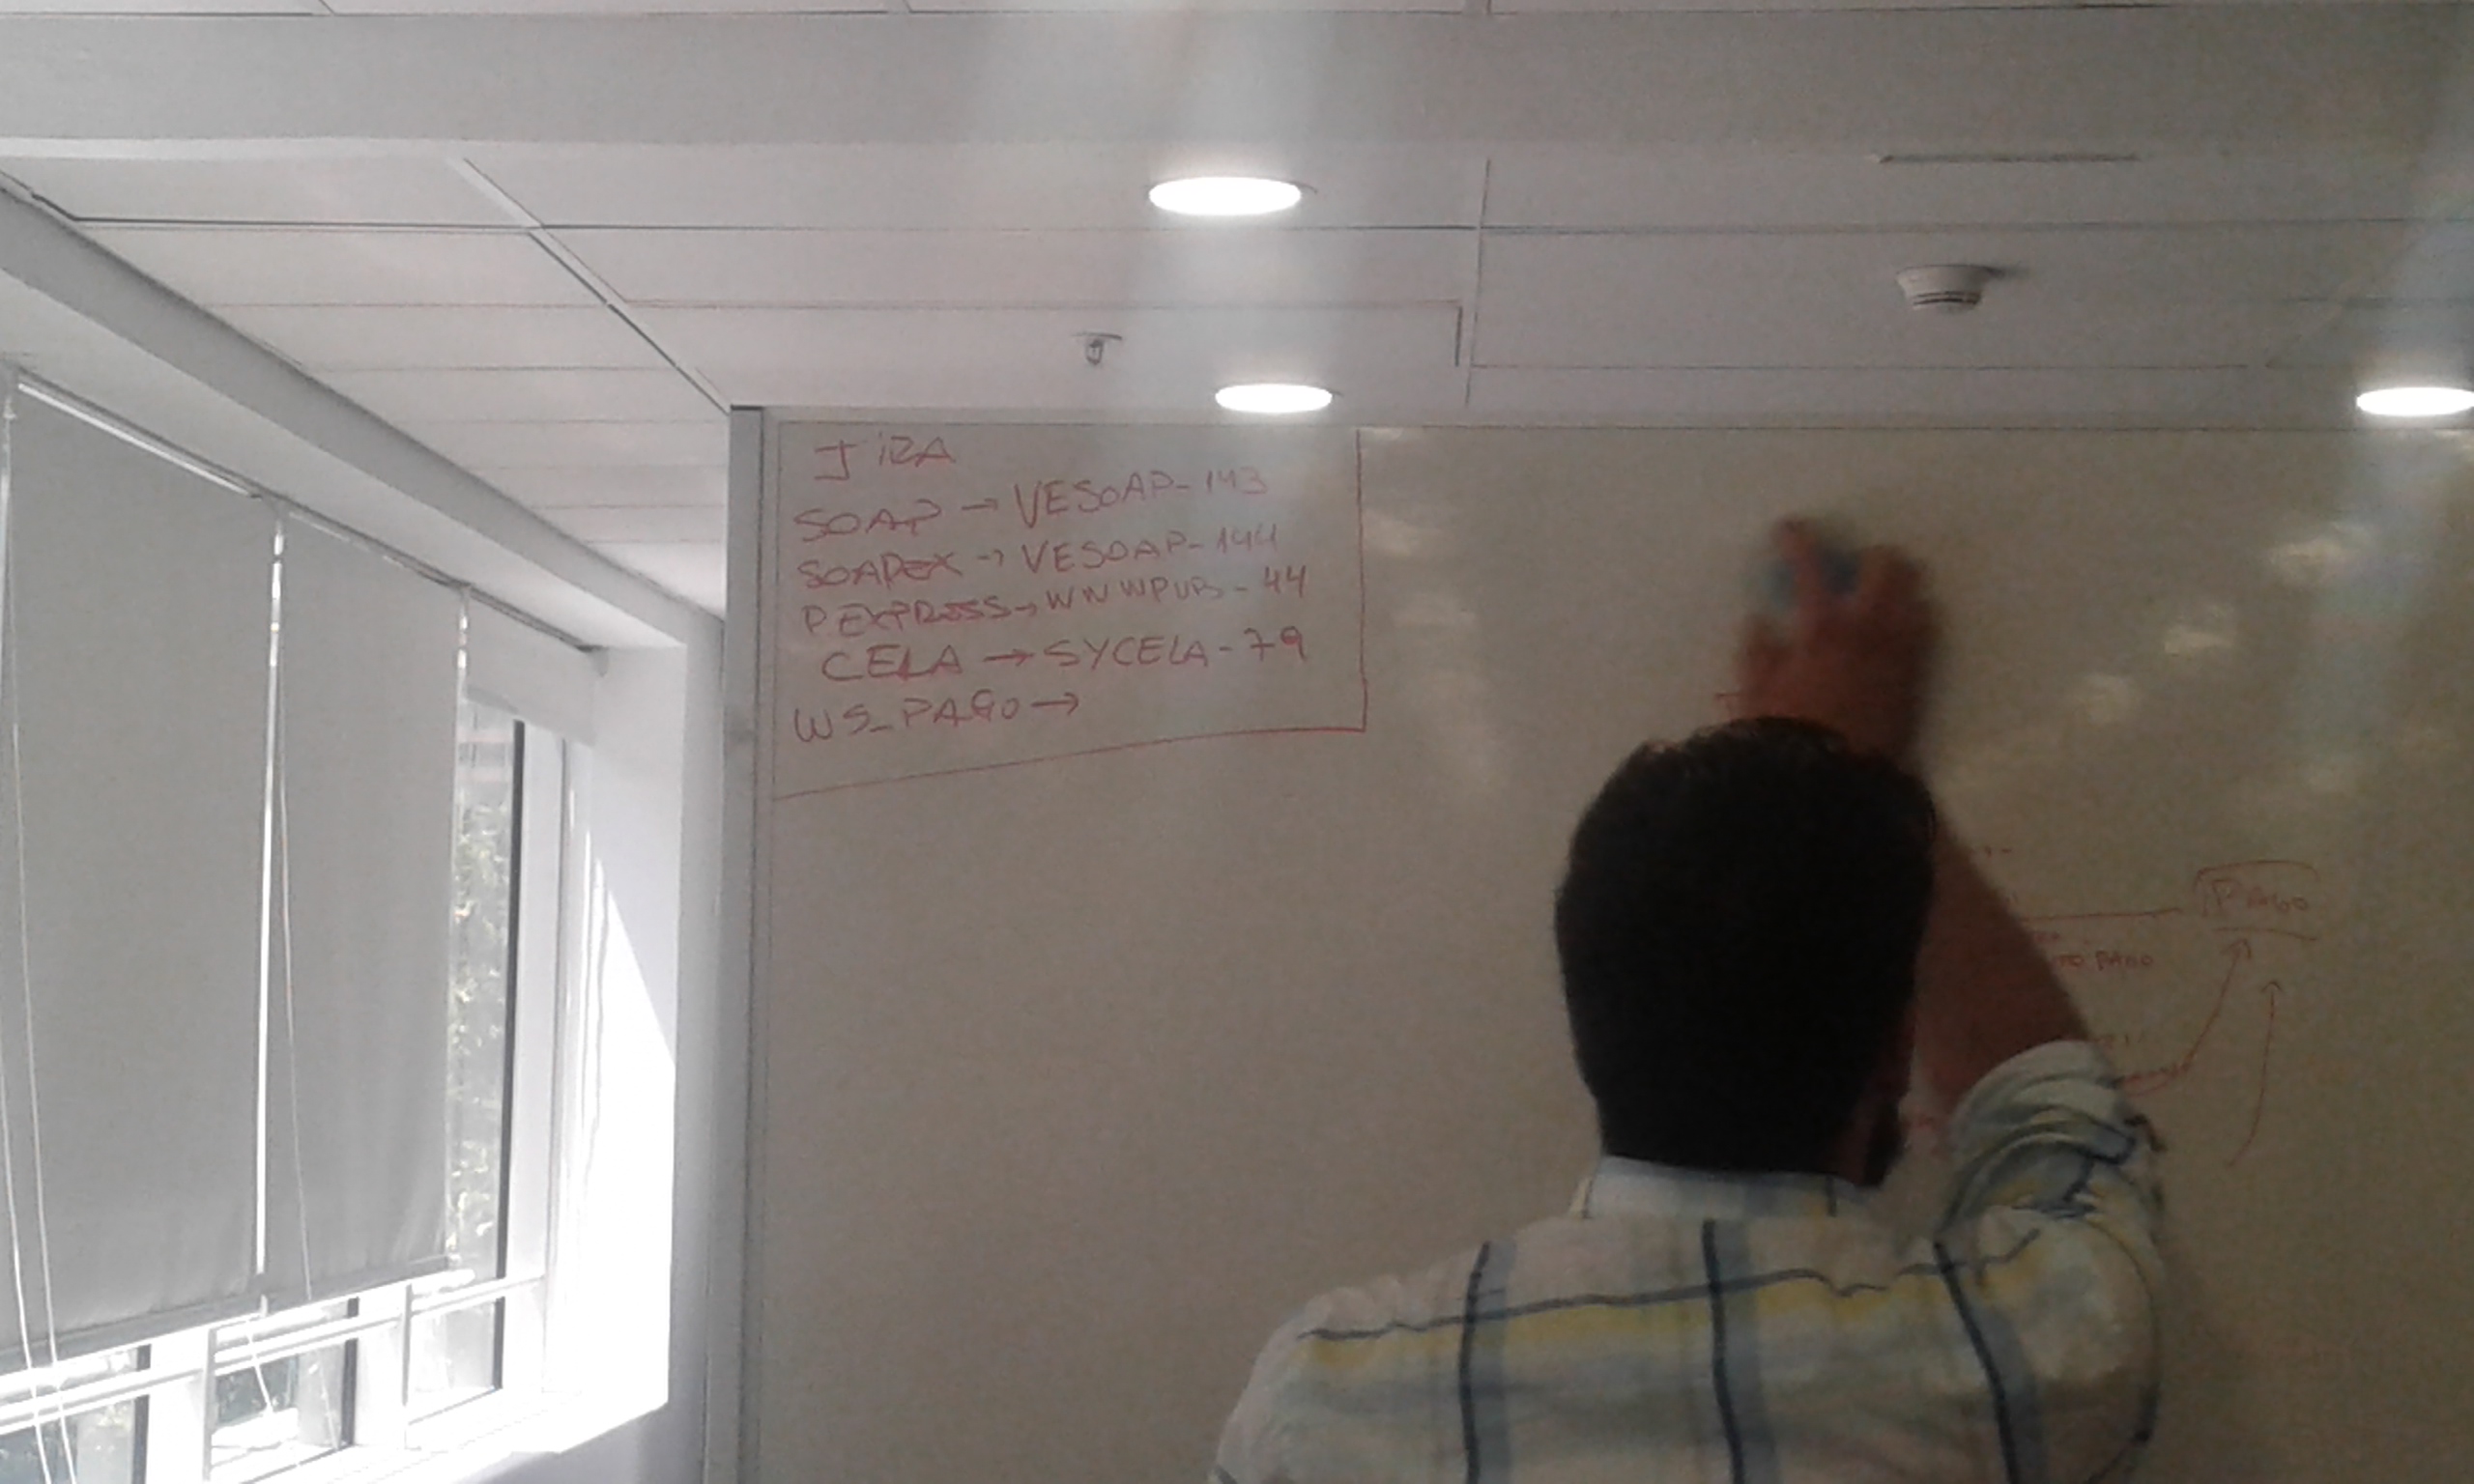 JiRA
SOAP → VESOAP-143
SOAPEX → VESOAP-144
PEXPRESS → WWWPUB-44
CELA → SYCELA-79
WS_PAGO →
PAGO
TO PAGO